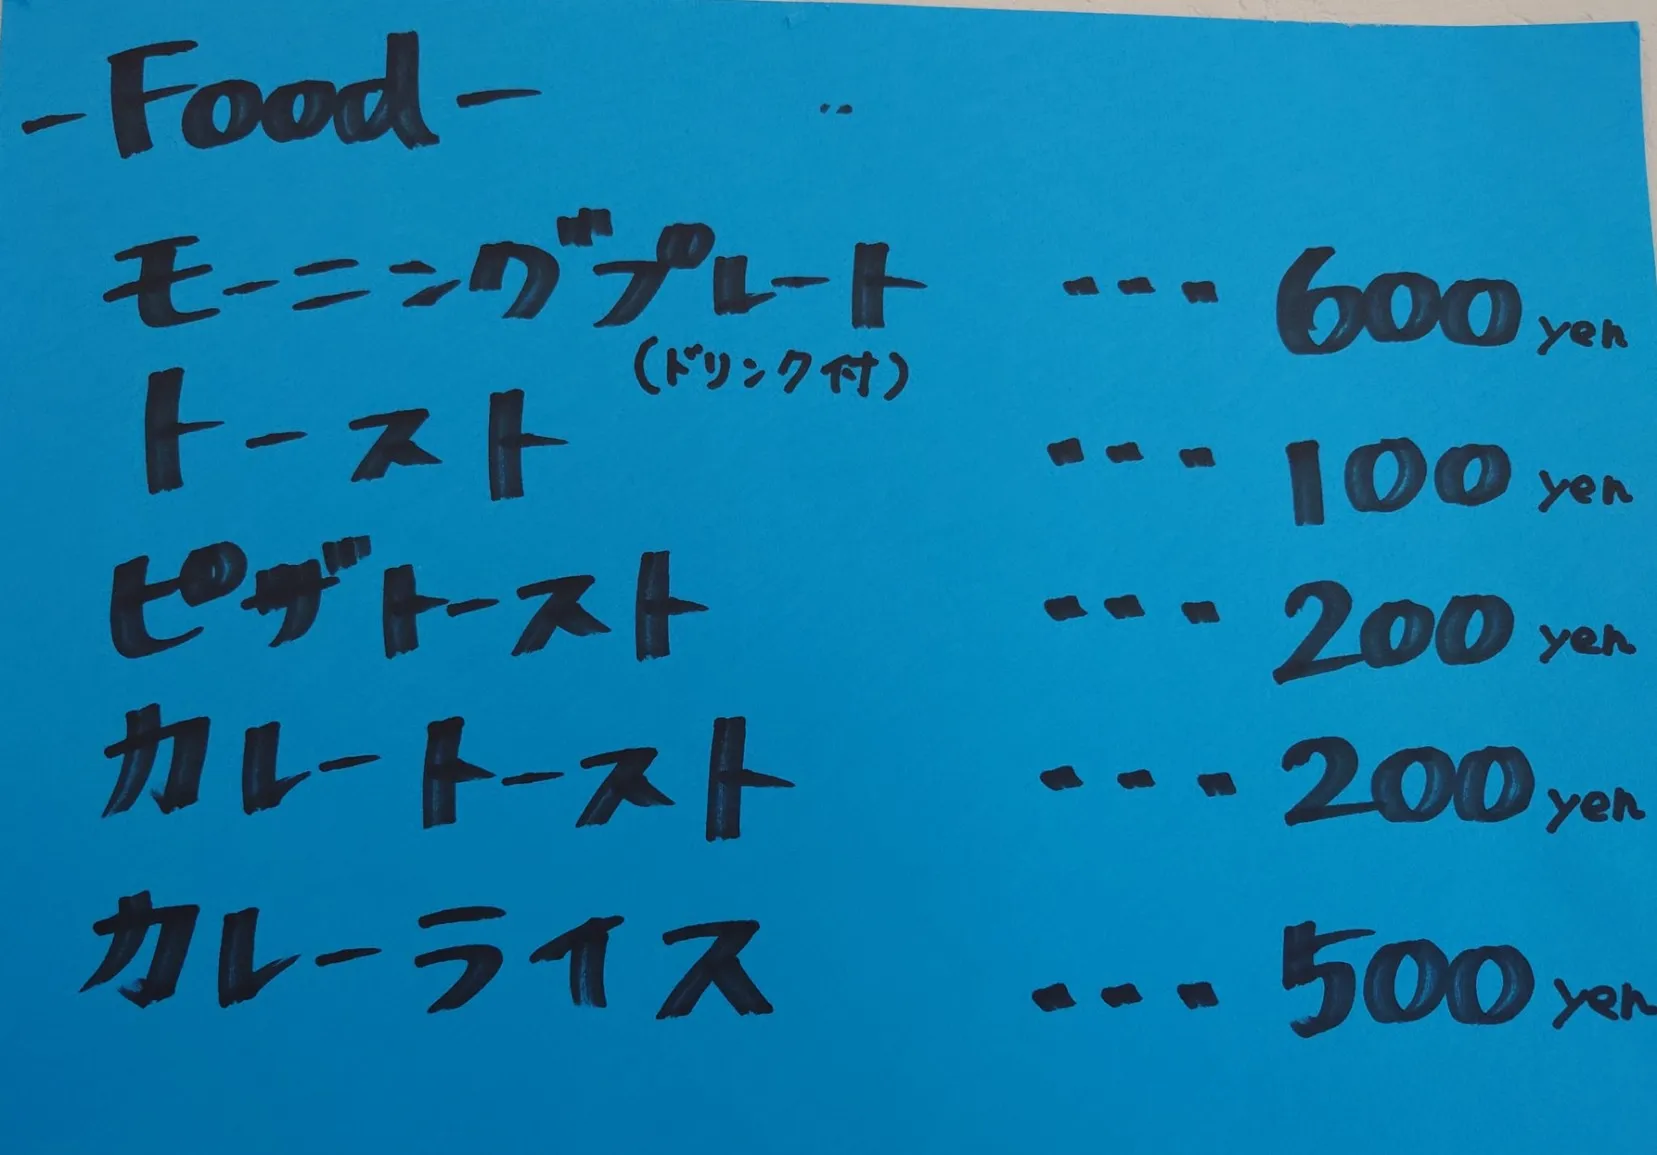 -Food-
モーニングプレート --- 600 yen
(ドリンク付)
トースト --- 100 yen
ピザトースト --- 200 yen
カレートースト --- 200 yen
カレーライス --- 500 yen